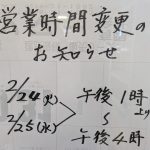 営業時間変更の
お知らせ
2/24(火)
2/25(水)
午後1時より
〜
午後4時